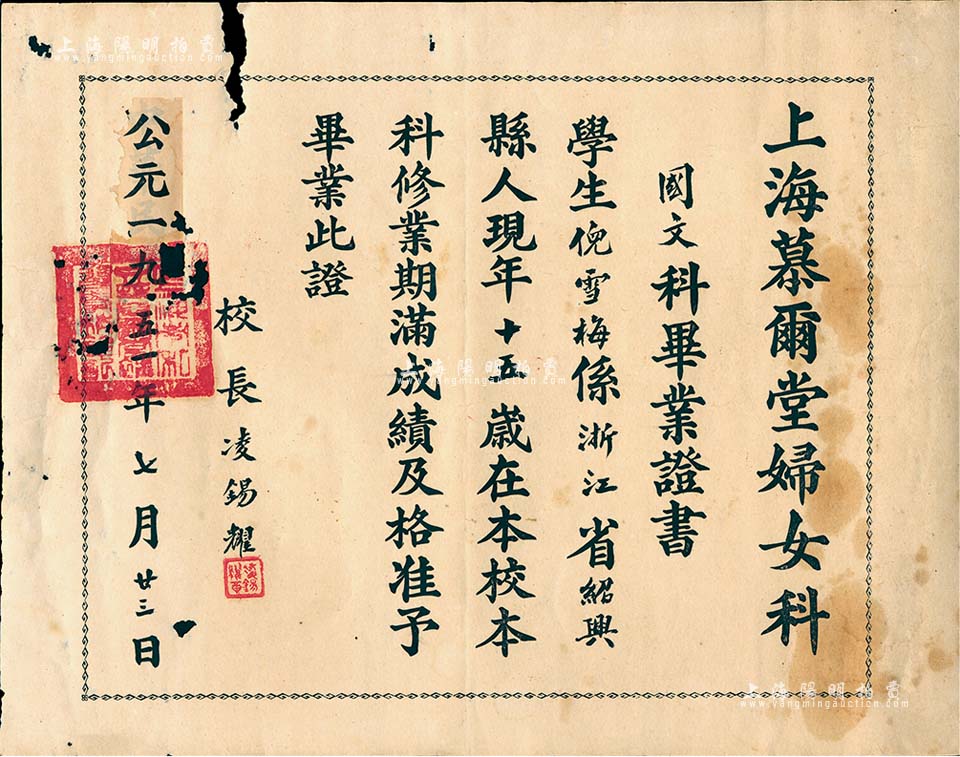 上海慕爾堂婦女科
國文科畢業證書
學生倪雪梅係浙江省紹興
縣人現年十五歲在本校本
科修業期滿成績及格准予
畢業此證
校長凌錫耀
公元一九五一年七月廿三日
上海陽明拍賣
www.yangmingauction.com
上海陽明拍賣
www.yangmingauction.com
上海陽明拍賣
www.yangmingauction.com